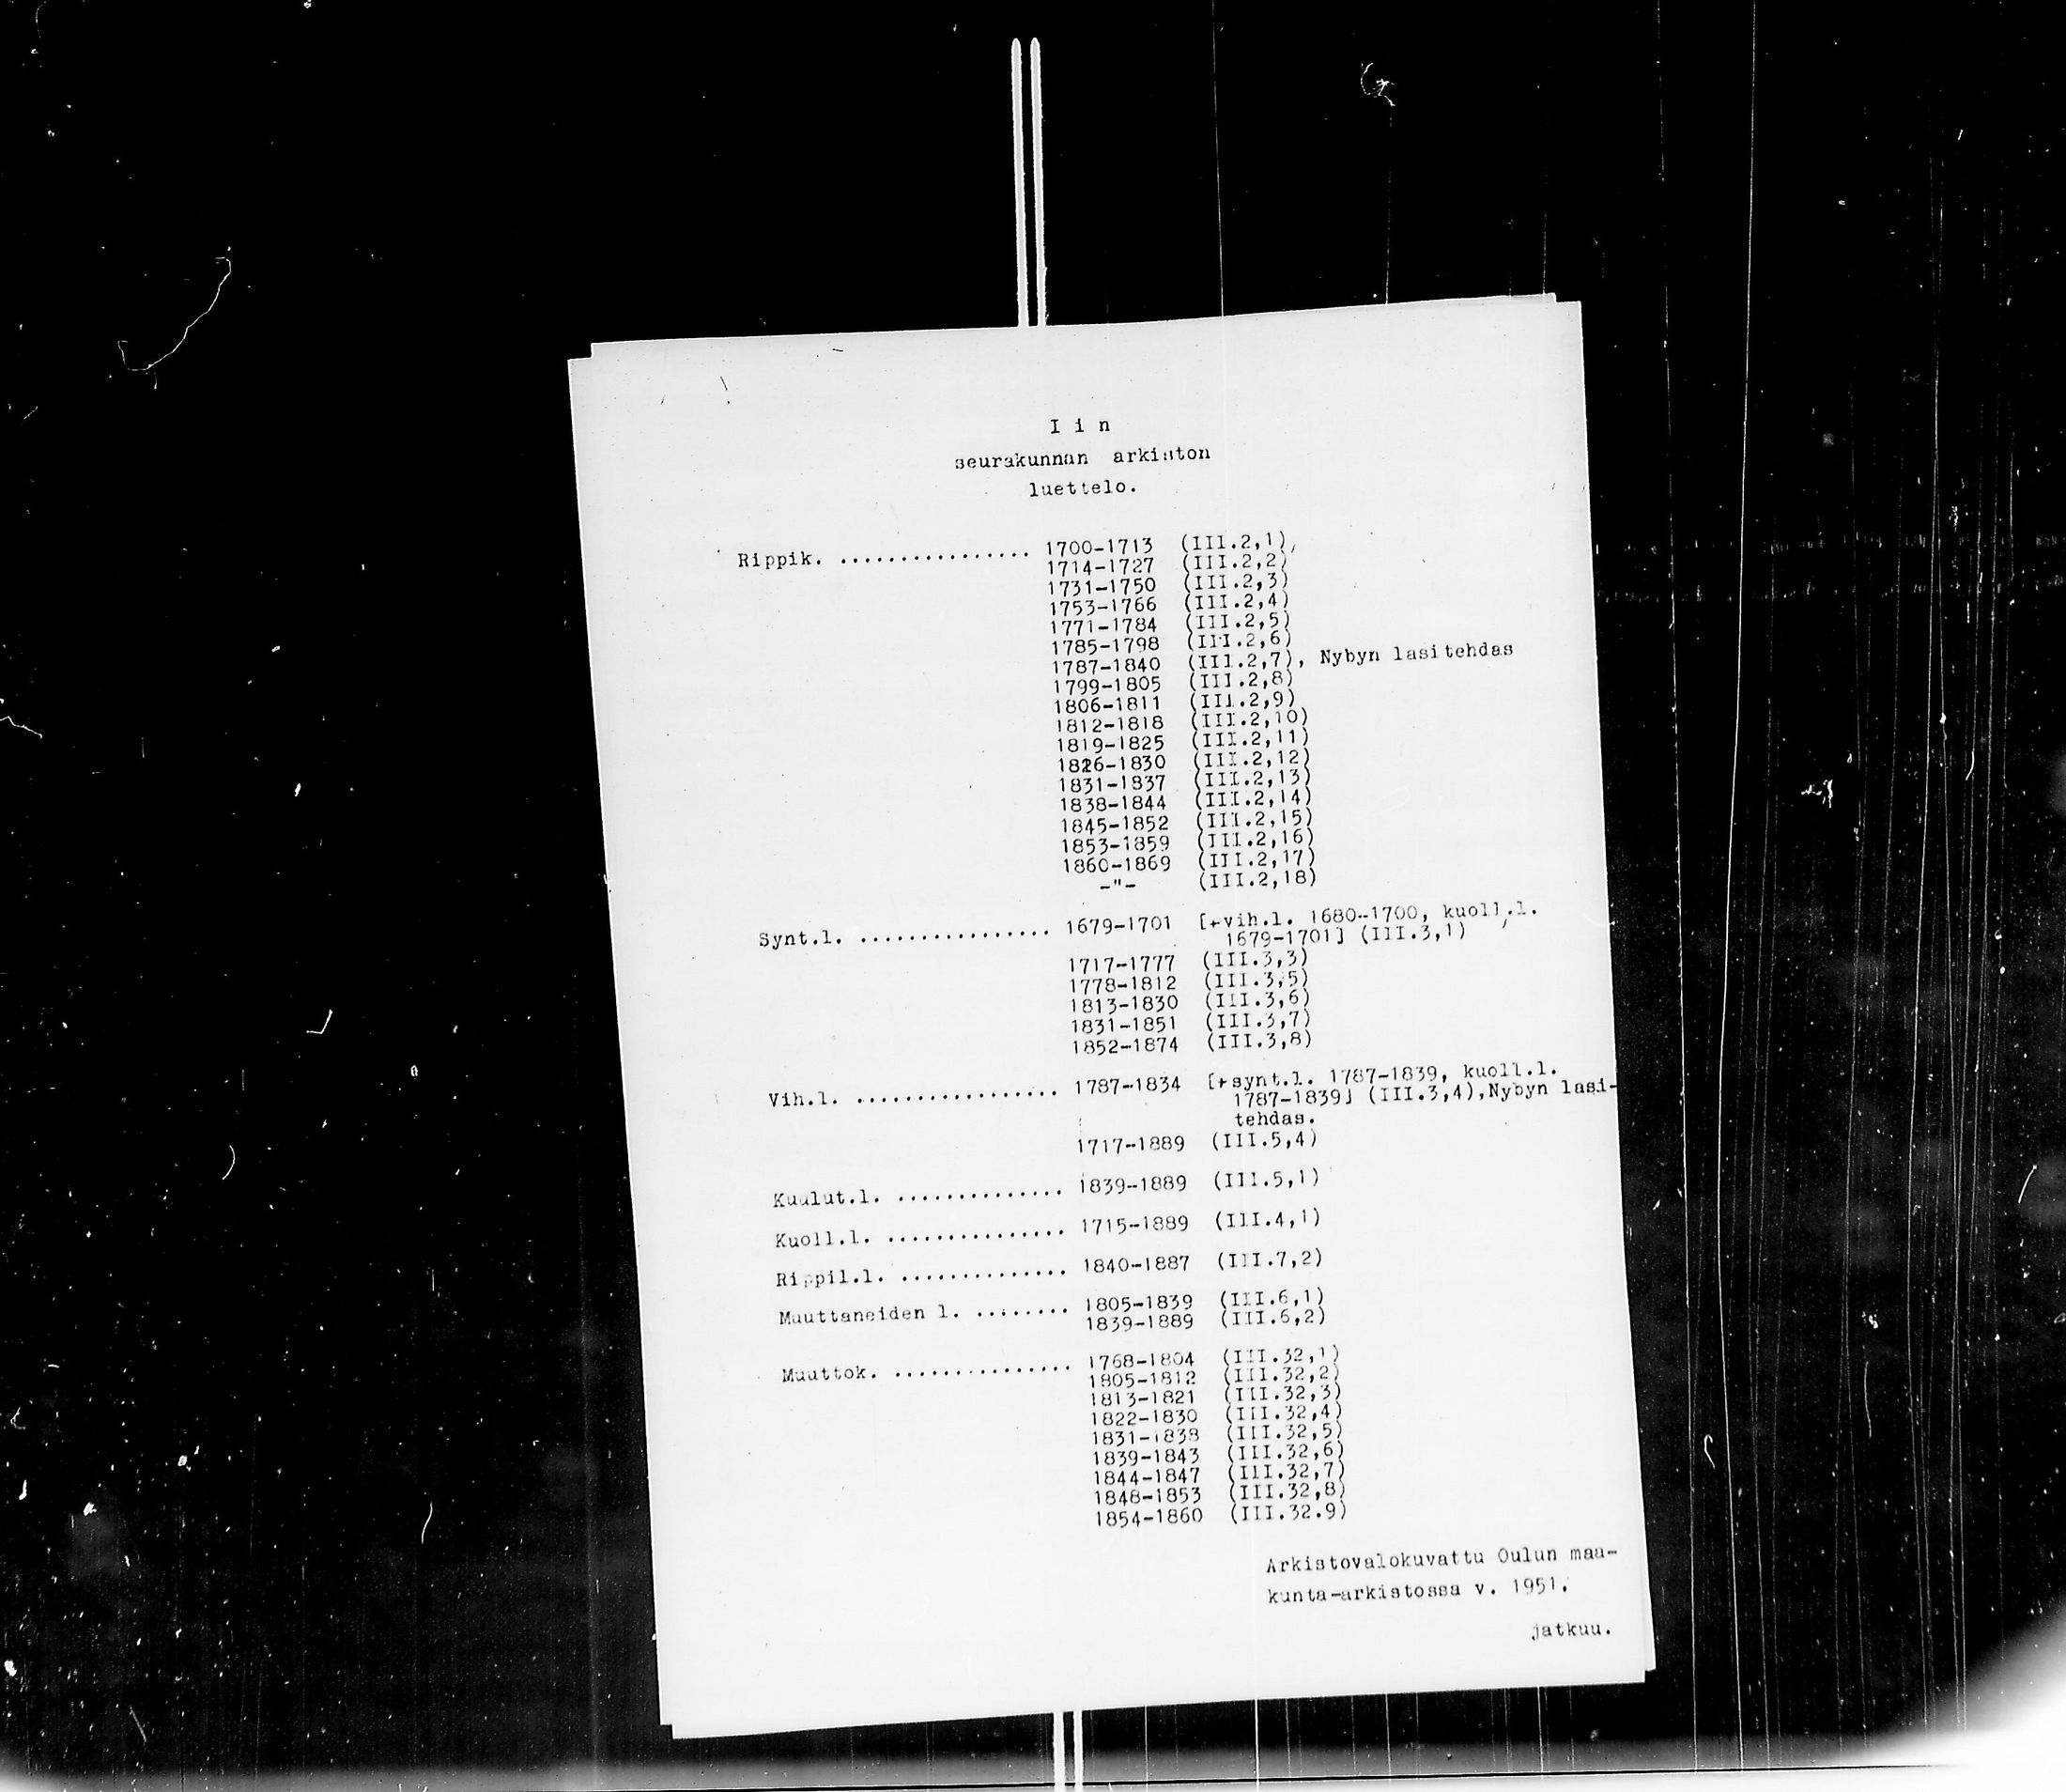 Iin
seurakunnan arkiston
luettelo.
Rippik. ................ 1700-1713 (III.2,1),
1714-1727 (III.2,2)
1731-1750 (III.2,3)
1753-1766 (III.2,4)
1771-1784 (III.2,5)
1785-1798 (III.2,6)
1787-1840 (III.2,7), Nybyn lasitehdas
1799-1805 (III.2,8)
1806-1811 (III.2,9)
1812-1818 (III.2,10)
1819-1825 (III.2,11)
1826-1830 (III.2,12)
1831-1837 (III.2,13)
1838-1844 (III.2,14)
1845-1852 (III.2,15)
1853-1859 (III.2,16)
1860-1869 (III.2,17)
-"- (III.2,18)
Synt.l. ................ 1679-1701 [+vih.l. 1680-1700, kuoll.l.
1679-1701] (III.3,1)
1717-1777 (III.3,3)
1778-1812 (III.3,5)
1813-1830 (III.3,6)
1831-1851 (III.3,7)
1852-1874 (III.3,8)
Vih.l. ................. 1787-1834 [+synt.l. 1787-1839, kuoll.l.
1787-1839] (III.3,4),Nybyn lasi-
tehdas.
1717-1889 (III.5,4)
Kuulut.l. .............. 1839-1889 (III.5,1)
Kuoll.l. ............... 1715-1889 (III.4,1)
Rippil.l. .............. 1840-1887 (III.7,2)
Muuttaneiden l. ........ 1805-1839 (III.6,1)
1839-1889 (III.6,2)
Muuttok. ............... 1768-1804 (III.32,1)
1805-1812 (III.32,2)
1813-1821 (III.32,3)
1822-1830 (III.32,4)
1831-1838 (III.32,5)
1839-1843 (III.32,6)
1844-1847 (III.32,7)
1848-1853 (III.32,8)
1854-1860 (III.32.9)
Arkistovalokuvattu Oulun maa-
kunta-arkistossa v. 1951.
jatkuu.